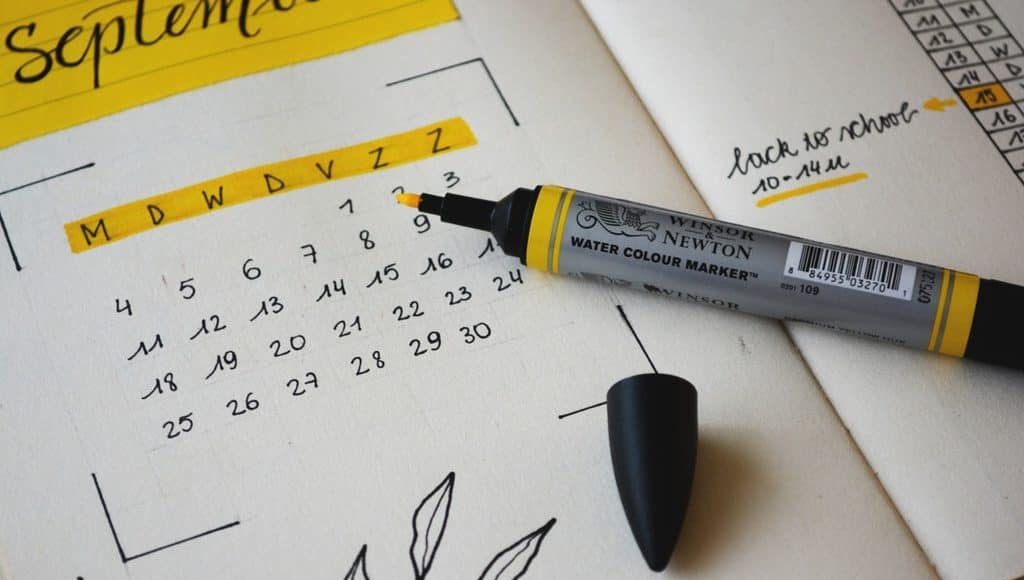 Septem
M D W D V Z Z
1 2 3
4 5 6 7 8 9
11 12 13 14 15 16
18 19 20 21 22 23 24
25 26 27 28 29 30
WINSOR
&
NEWTON
WATER COLOUR MARKER™
8 84955 03270 1
109
WINSOR
11 M
12 D
13 W
14 D
15
16
back to school
10-14u